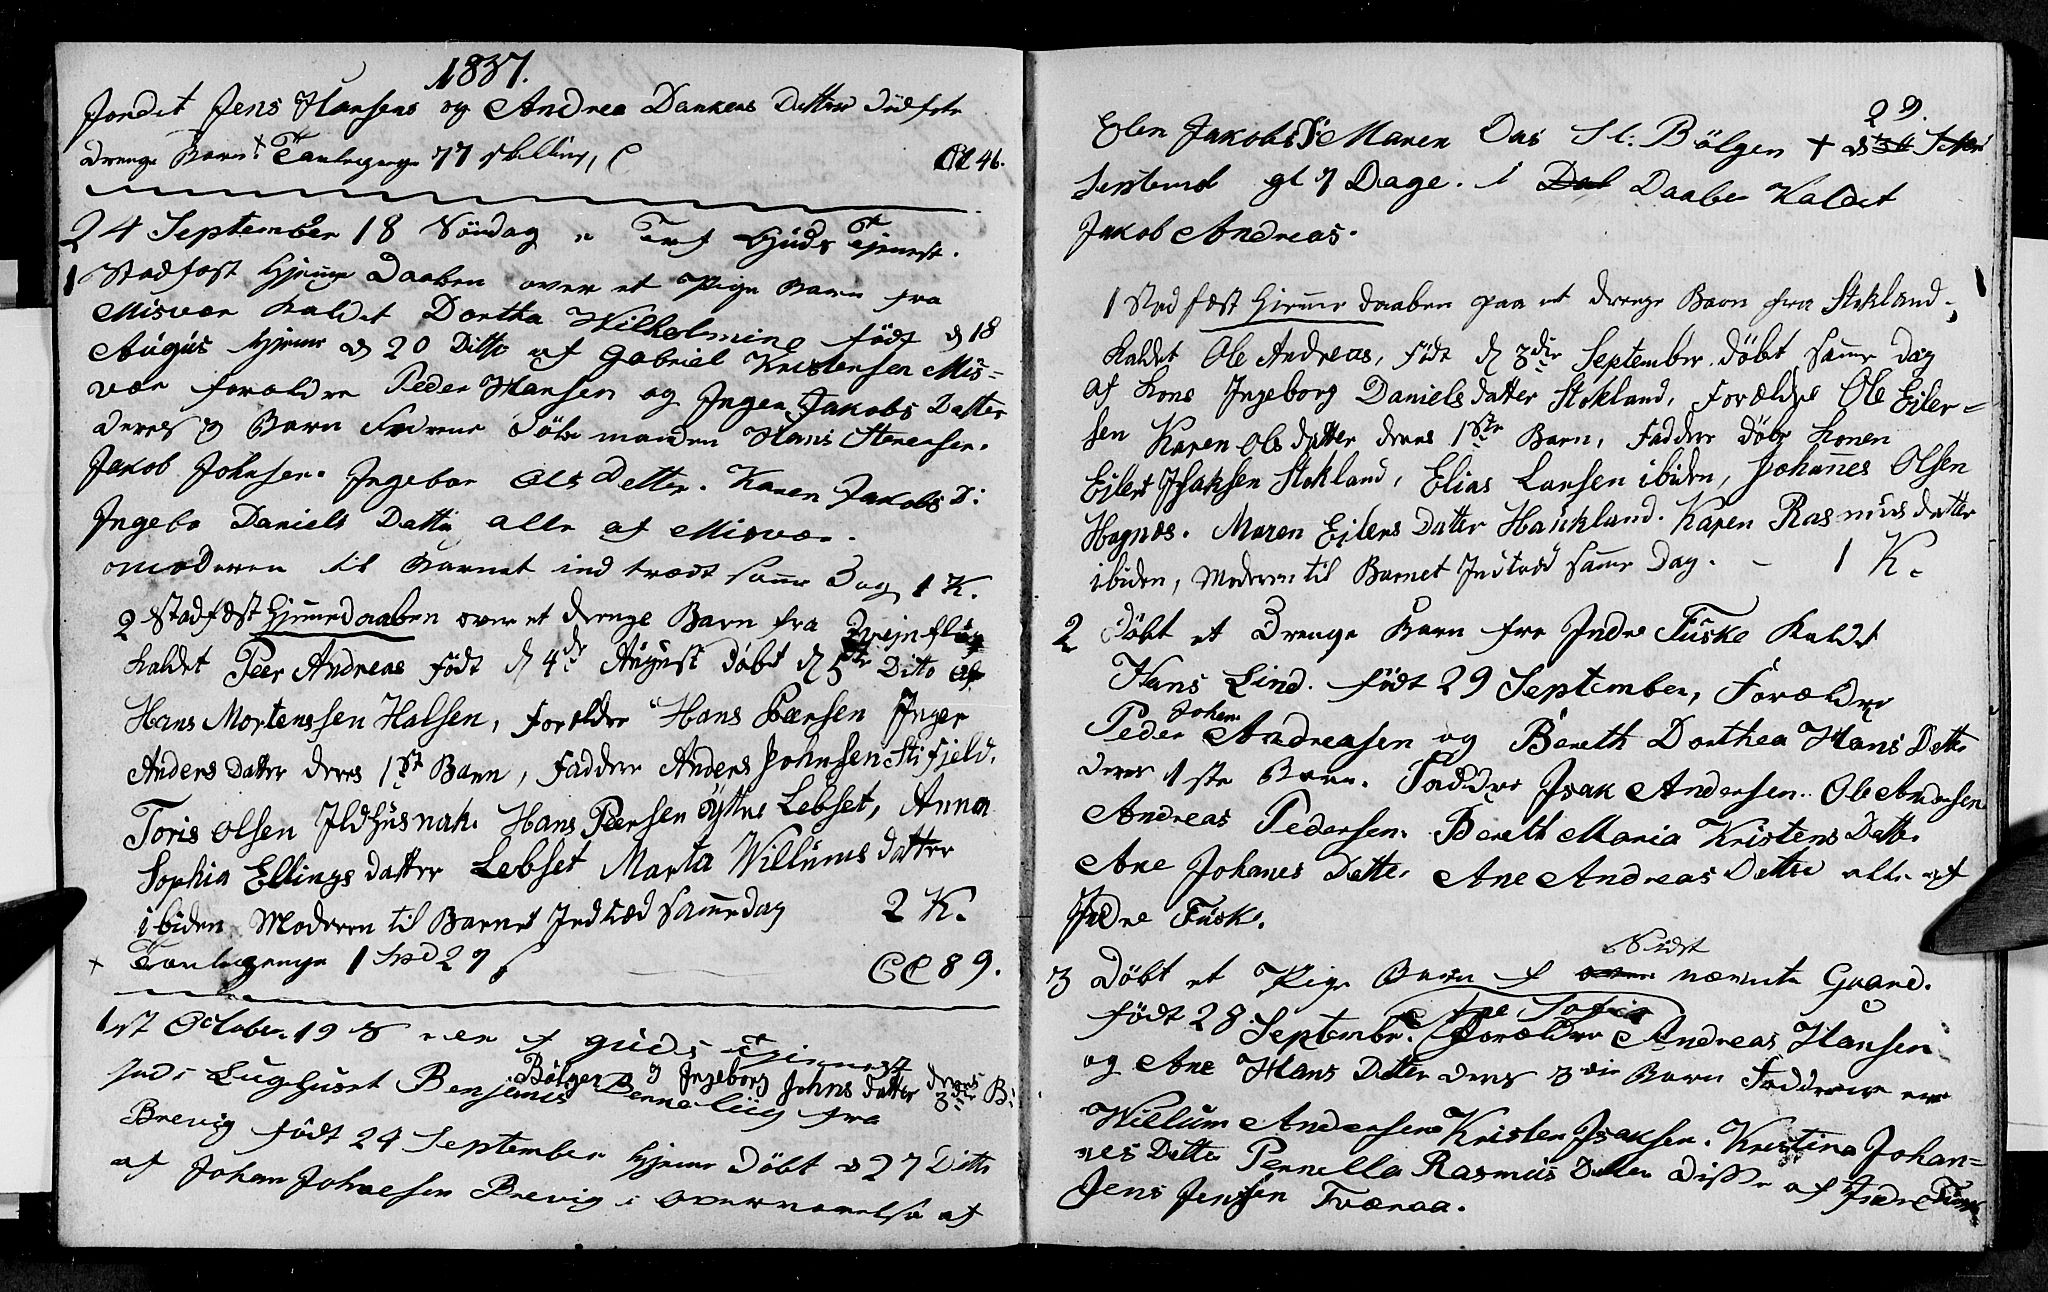 1837.
Jens Hansens og Andrea Dankens Datter
drenge Barn. Tavlepenge 77 skilling, C
CC 46.
24 September 18 Söndag Guds Tjenest.
1 Stadfæst Hjemme Daaben over et Pige Barn fra
Misvær kaldet Dorthe Wilhelmine födt d 18
Augus hjeme d 20 Ditto af Gabriel Kristensen Mis=
vær foraldre Peder Hansen og Inger Jakobs Datter
deres Barn manden Hans Sörensen.
Jakob Johnsen. Ingebor Ols Detter. Karen Jakobs D:
Ingebo Daniels Datter alle af Misvær.
moderen til Barnet ind trædt same Dag 1 K.
2 Stadfæst Hjemmedaaben over et drenge Barn fra
kaldet Peer Andreas födt d 4de August döbt d 5te Ditto af
Hans Mortenssen Halsen, Forældre Hans Pærsen Inger
Anders Datter deres 1ste Barn, Faddere Anders Johnsen Stifjeld.
Toris Olsen Ildhusnak. Hans Peersen Øyttre Lebset, Anna
Sophia Ellings datter Lebset Marta Willums datter
ibiden Moderen til Barnet Indtræd samme dag 2 K.
+ Tavlepenge 1 Spd 29 s
CC 89.
1st October 19 S e T guds Tjenest
Lugehuset Benjamin Berneliig fra
Bölgen og Ingeborg Johns datter deres 3die B:
Brevig födt 24 September hjeme döbt d 27 Ditto
af Johan Johnesen Brevig i overværelse af
29.
Elen Jakobs D Maren Das St: Bölgen + d
Septemb gl 7 Dage. i Daaben Kaldet
Jakob Andreas.
1 Stadfæst Hjemme daaben paa et drenge Barn fra Stokland.
kaldet Ole Andreas, födt d 3die September. döbt samme Dag
af Kone Ingeborg Daniels datter Stokland, Forældre Ole Eiler=
sen Karen Ols datter deres 1ste Barn, Faddere döbe konen
Eilert Isaksen Stokland, Elias Larsen ibiden, Johannes Olsen
Hagnes. Maren Eilers Datter Haukland. Karen Rasmus datter
ibiden, Moderen til Barnet Indtræd samme Dag. - 1 K.
2 Döbt et Drenge Barn fra Indre Fuske kaldt
Hans Lind. födt 29 September, Forældre
Peder Johan Andreasen og Bereth Dorthea Hans Datter
deres 1ste Barn. Faddre Isak Andersen. Ole Andersen
Andreas Pedersen. Bereth Maria Kristens Datt.
Ane Johanes Dette. Ane Andreas Dette alle af
Indre Fusk.
3 Döbt et Pige Barn f Sidst nævnte Gaard.
födt 28 September. Ane Sofia Forældre Andreas Hansen
og Ane Hans Detter deres 3die Barn Faddere ere
Willum Andersen Kristen Isaksen. Kristina Johan=
nes Dette Pernella Rasmus Detter disse af Indre Fuske
Jens Jensen Tværaa.